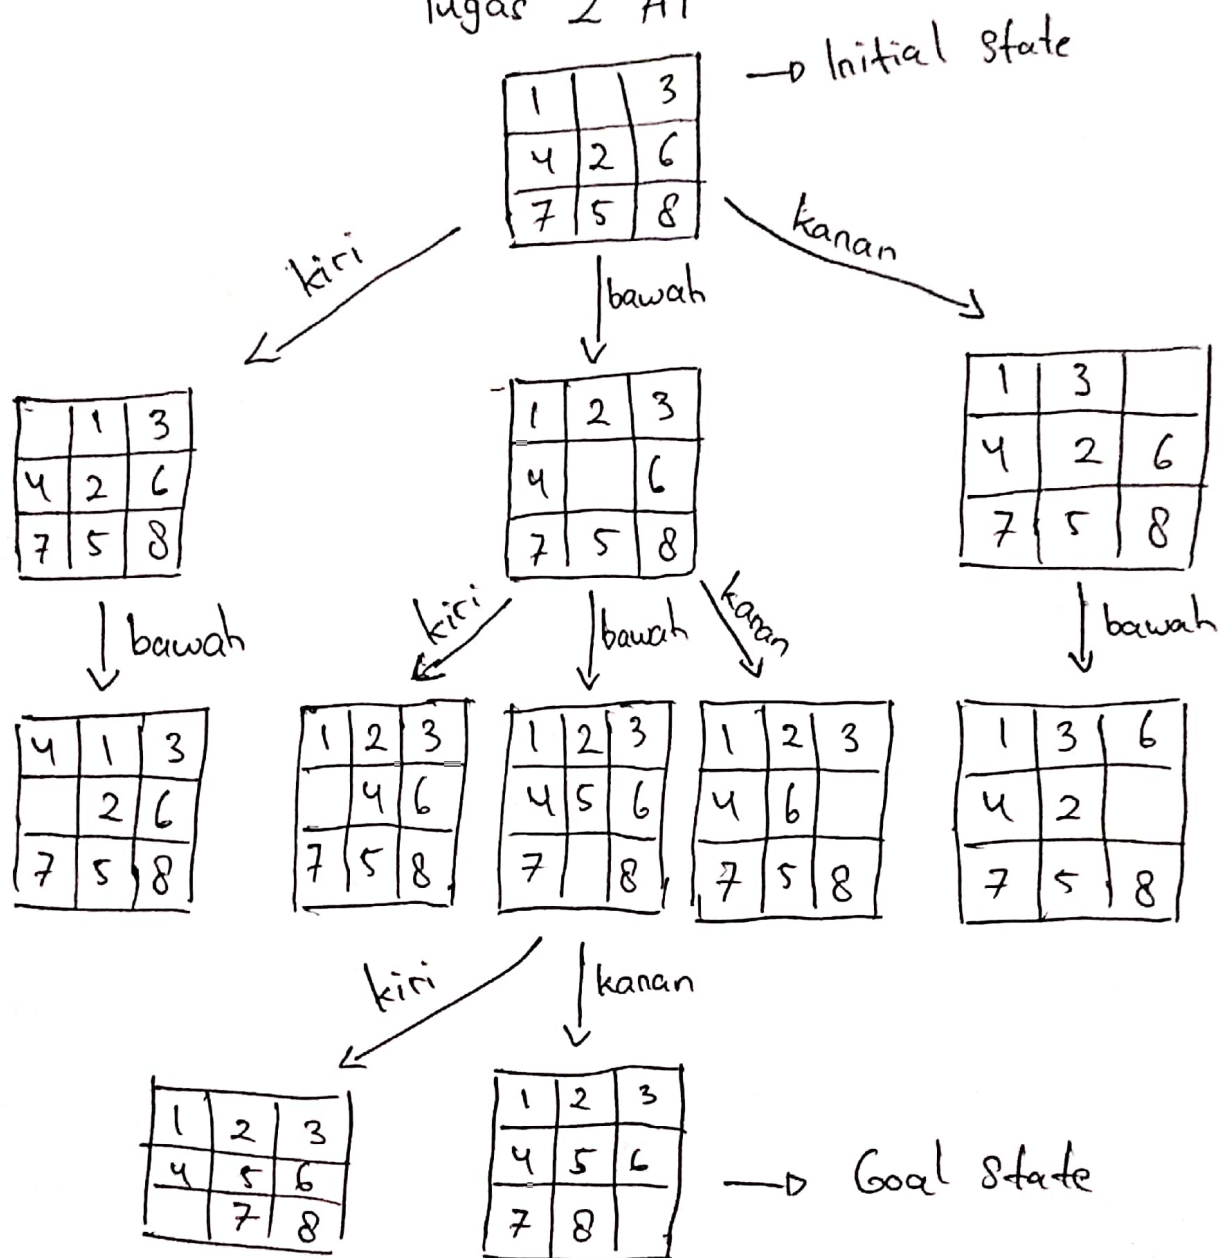 Tugas 2 AI
→ Initial State
1 3
4 2 6
7 5 8
kiri
bawah
kanan
1 3
4 2 6
7 5 8
1 2 3
4 6
7 5 8
1 3
4 2 6
7 5 8
bawah
kiri
bawah
kanan
bawah
4 1 3
2 6
7 5 8
1 2 3
4 6
7 5 8
1 2 3
4 5 6
7 8
1 2 3
4 6
7 5 8
1 3 6
4 2
7 5 8
kiri
kanan
1 2 3
4 5 6
7 8
1 2 3
4 5 6
7 8
→ Goal State